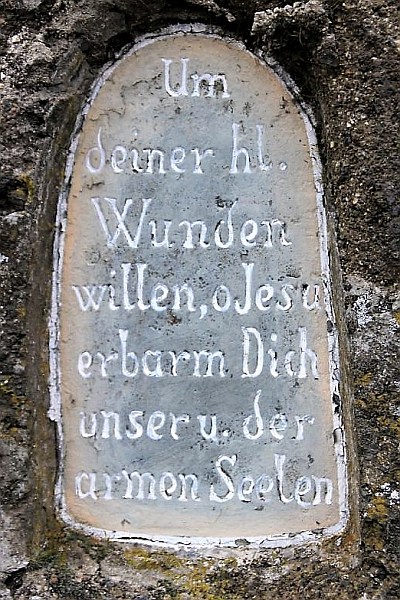 Um
deiner hl.
Wunden
willen, o Jesu
erbarm Dich
unser u. der
armen Seelen